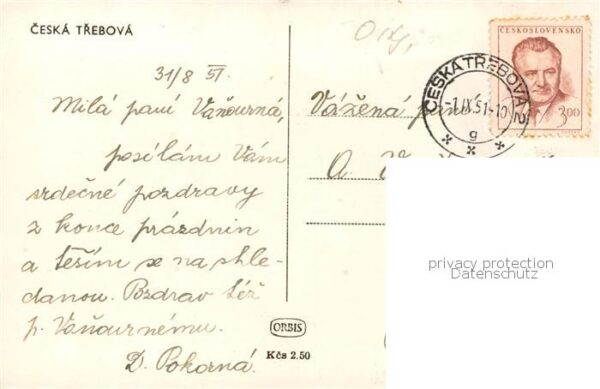 ČESKÁ TŘEBOVÁ
31/8 51.
Milá paní Vaňourná,
posílám Vám
srdečné pozdravy
z konce prázdnin
a těším se na shle-
danou. Pozdrav též
p. Vaňournému.
D. Pokorná.
ORBIS
Kčs 2.50
Vážená paní
A. V
ČESKOSLOVENSKO
3.00
ČESKÁ TŘEBOVÁ 2
-1.IX.51-10
g
privacy protection
Datenschutz